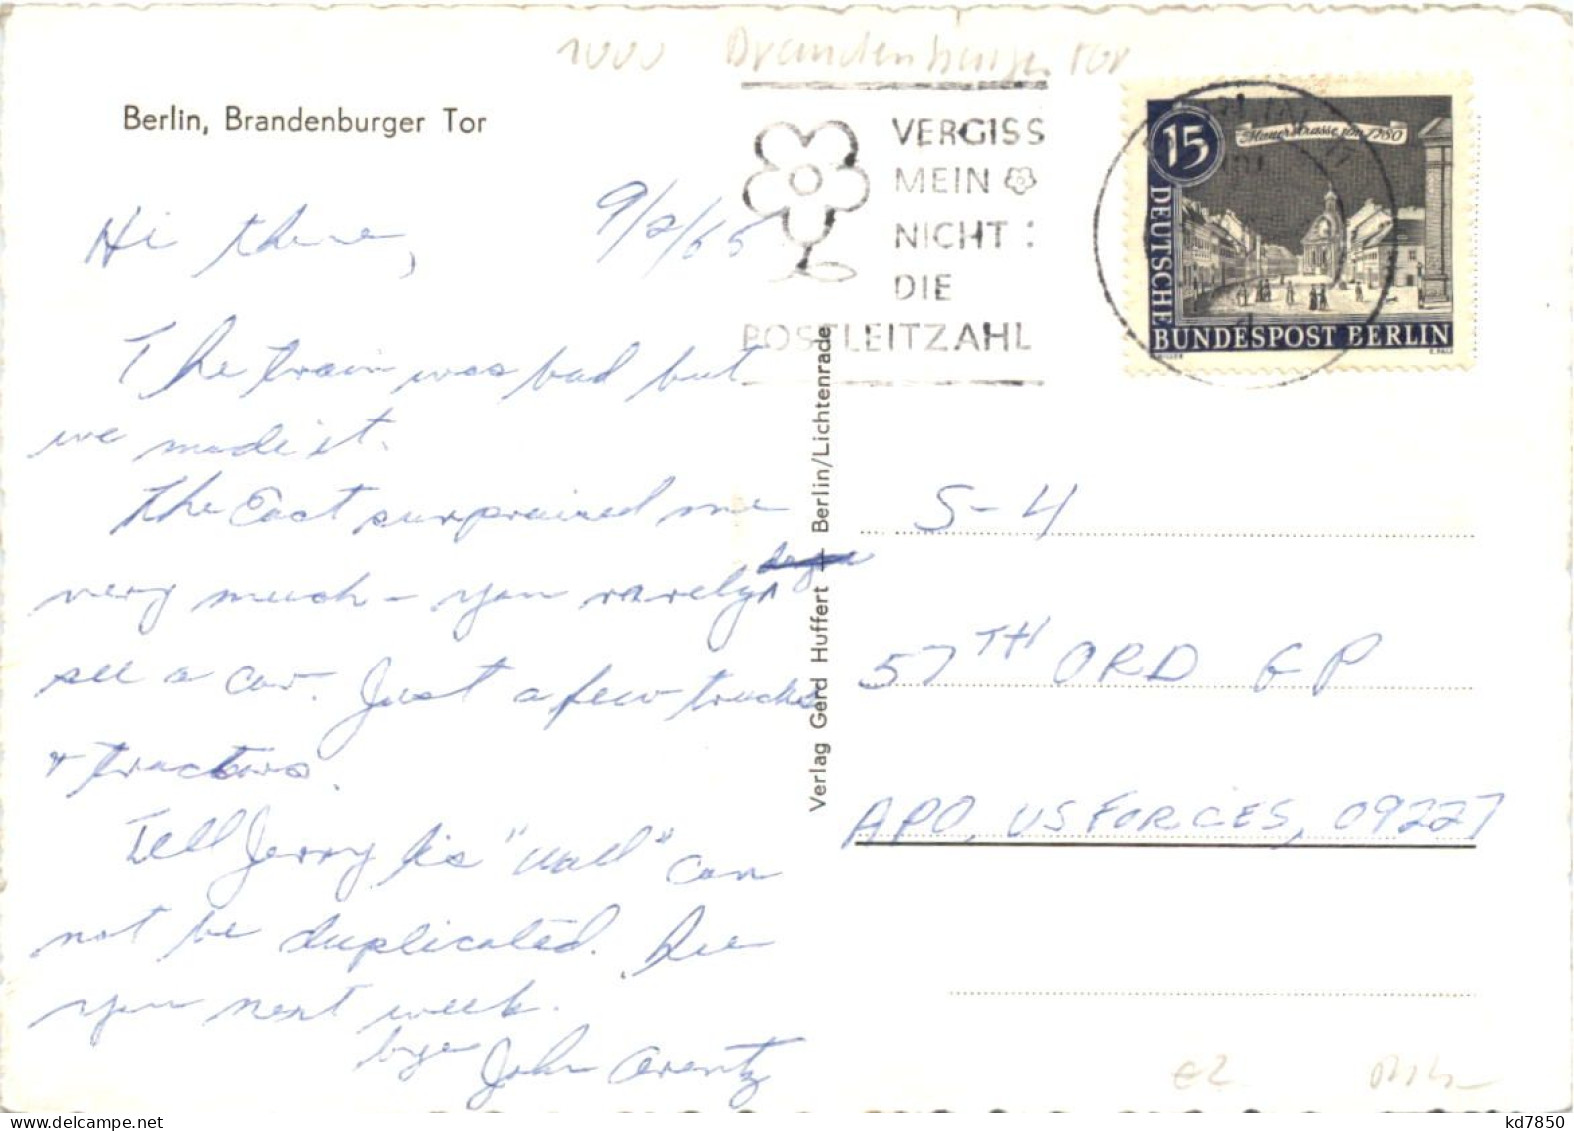 1000 Brandenburger Tor
Berlin, Brandenburger Tor
Hi there,
9/2/65
The train was bad but
we made it.
The East surpraised me
very much - you rarely
see a car. Just a few trucks
+ tractors.
Tell Jerry his "wall" can
not be duplicated. See
you next week.
bye
John Arentz
VERGISS
MEIN
NICHT:
DIE
POSTLEITZAHL
15
Mauerstrasse um 1780
DEUTSCHE
BUNDESPOST BERLIN
Verlag Gerd Huffert — Berlin/Lichtenrade
S-4
57TH ORD GP
APO, US FORCES, 09227
€2
kd7850